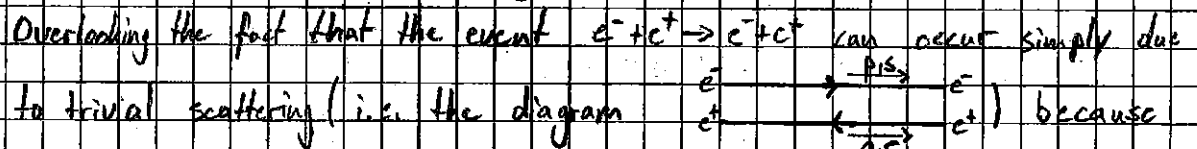 Overlooking the fact that the event e⁻+e⁺→e⁻+e⁺ can occur simply due
to trivial scattering (i.e. the diagram e⁻ p,s e⁻ e⁺ e⁺) because